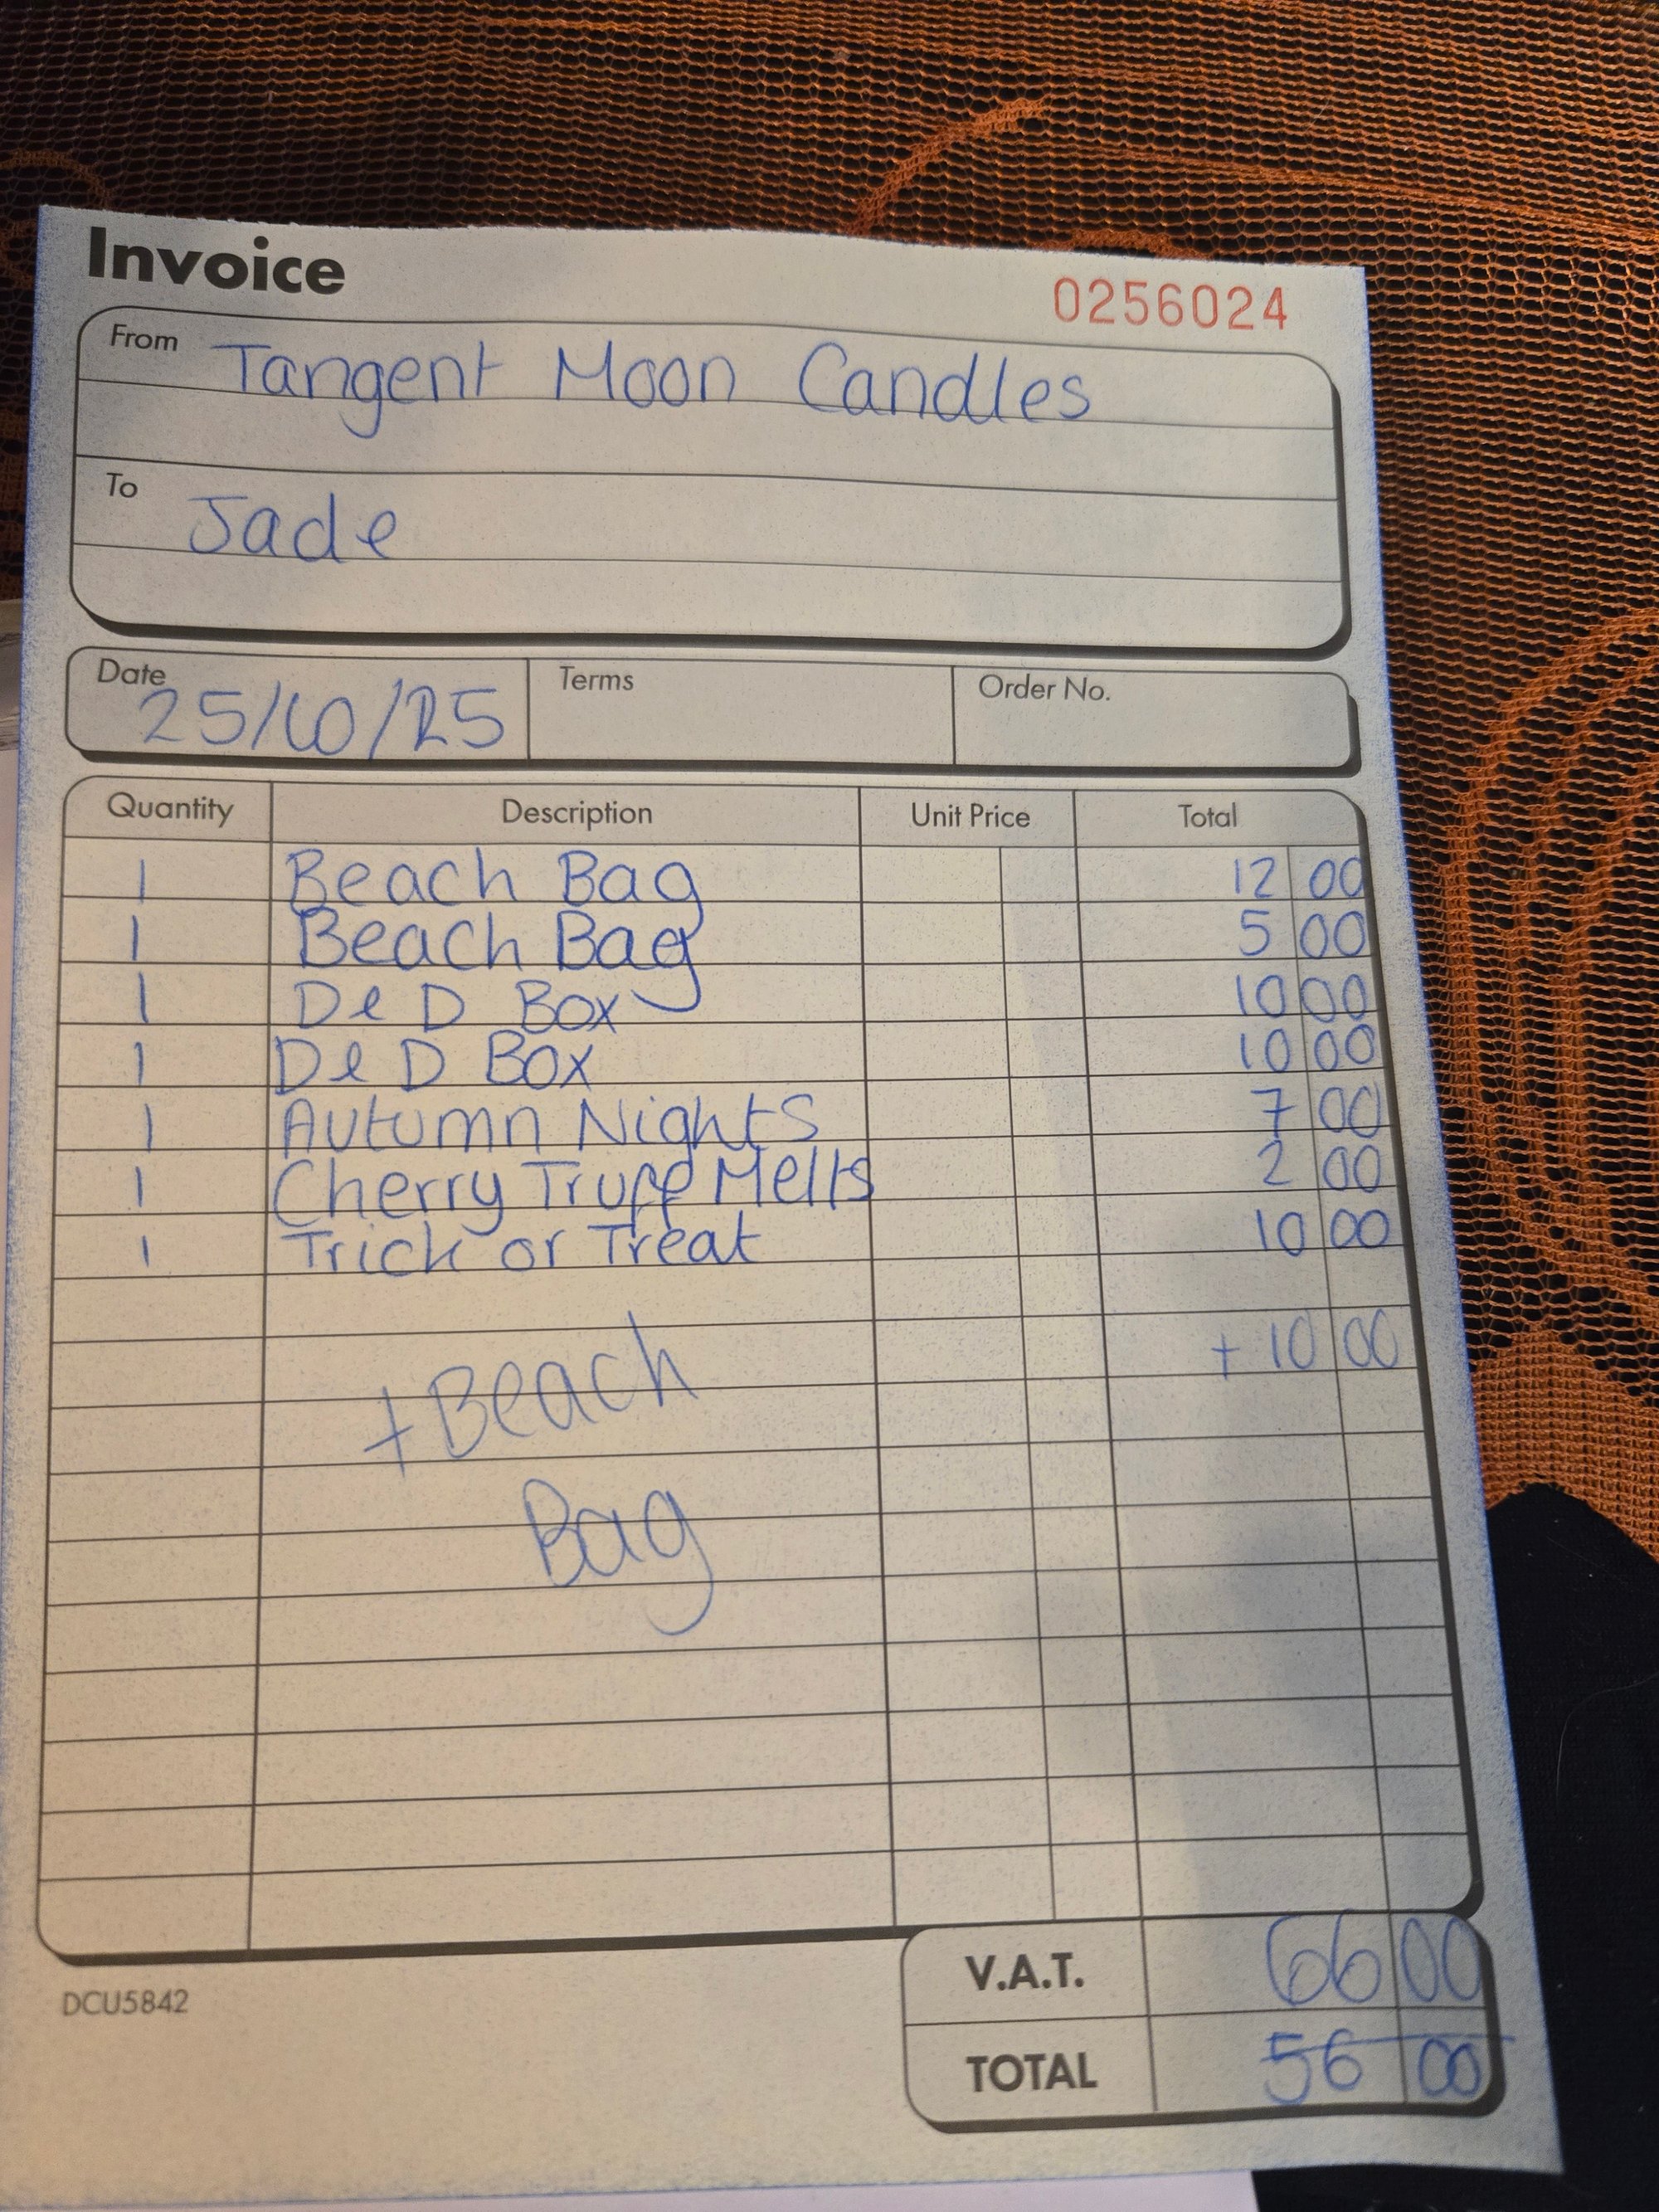 Invoice
0256024
From Tangent Moon Candles
To Jade
Date 25/10/25 Terms Order No.
Quantity Description Unit Price Total
1 Beach Bag 12 00
1 Beach Bag 5 00
1 D&D Box 10 00
1 D&D Box 10 00
1 Autumn Nights 7 00
1 Cherry Truff Melts 2 00
1 Trick or Treat 10 00
+ Beach + 10 00
Bag
V.A.T. 66 00
TOTAL 56 00
DCU5842